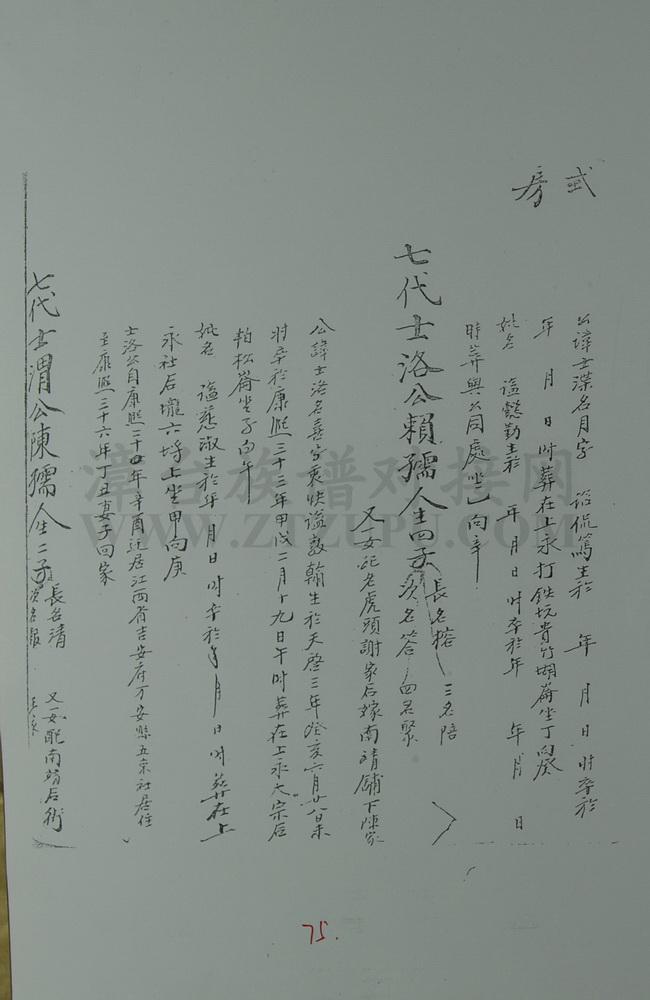 贰房
公諱士深名月字 諡侃篤生於 年 月 日时卒於
年 月 日时葬在上永打鉄坑貴竹湖崙坐丁向癸
妣名 諡懿勤生於 年月日时卒於年 年月 日
時葬與公同處坐乙向辛
七代士洛公賴孺人生四子
長名榕 三名陪
次名答 四名聚
又一女配老虎頭謝家后嫁南靖舖下陳家
公諱士洛名喜字 諡敦翰生於天啓三年癸亥六月廿八日未
时卒於康熙三十三年甲戌二月十九日午时葬在上永大宗后
柏松崙坐子向午
妣名 諡慈淑生於年 月日时卒於年月 日时葬在上
永社后壠六埒上坐甲向庚
士洛公自康熙二十年辛酉迁居江西省吉安府万安縣五京社居住
至康熙三十六年丁丑妻子回家
七代士渭公陳孺人生二子
長名清
次名報
又一女配南靖后街
漳台族谱对接网
WWW.ZTZUPU.COM
75.